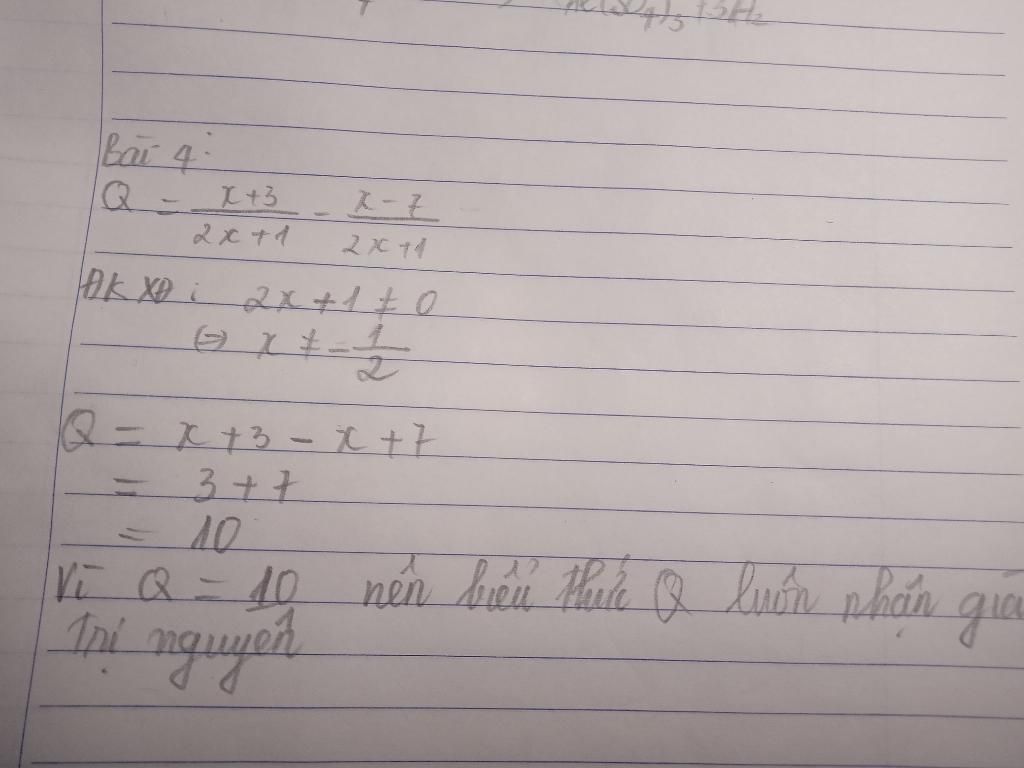 Bài 4:
Q = \frac{x+3}{2x+1} - \frac{x-7}{2x+1}
ĐKXĐ: 2x+1 ≠ 0
⇔ x ≠ -\frac{1}{2}
Q = x+3-x+7
= 3+7
= 10
Vì Q = 10 nên biểu thức Q luôn nhận giá
trị nguyên